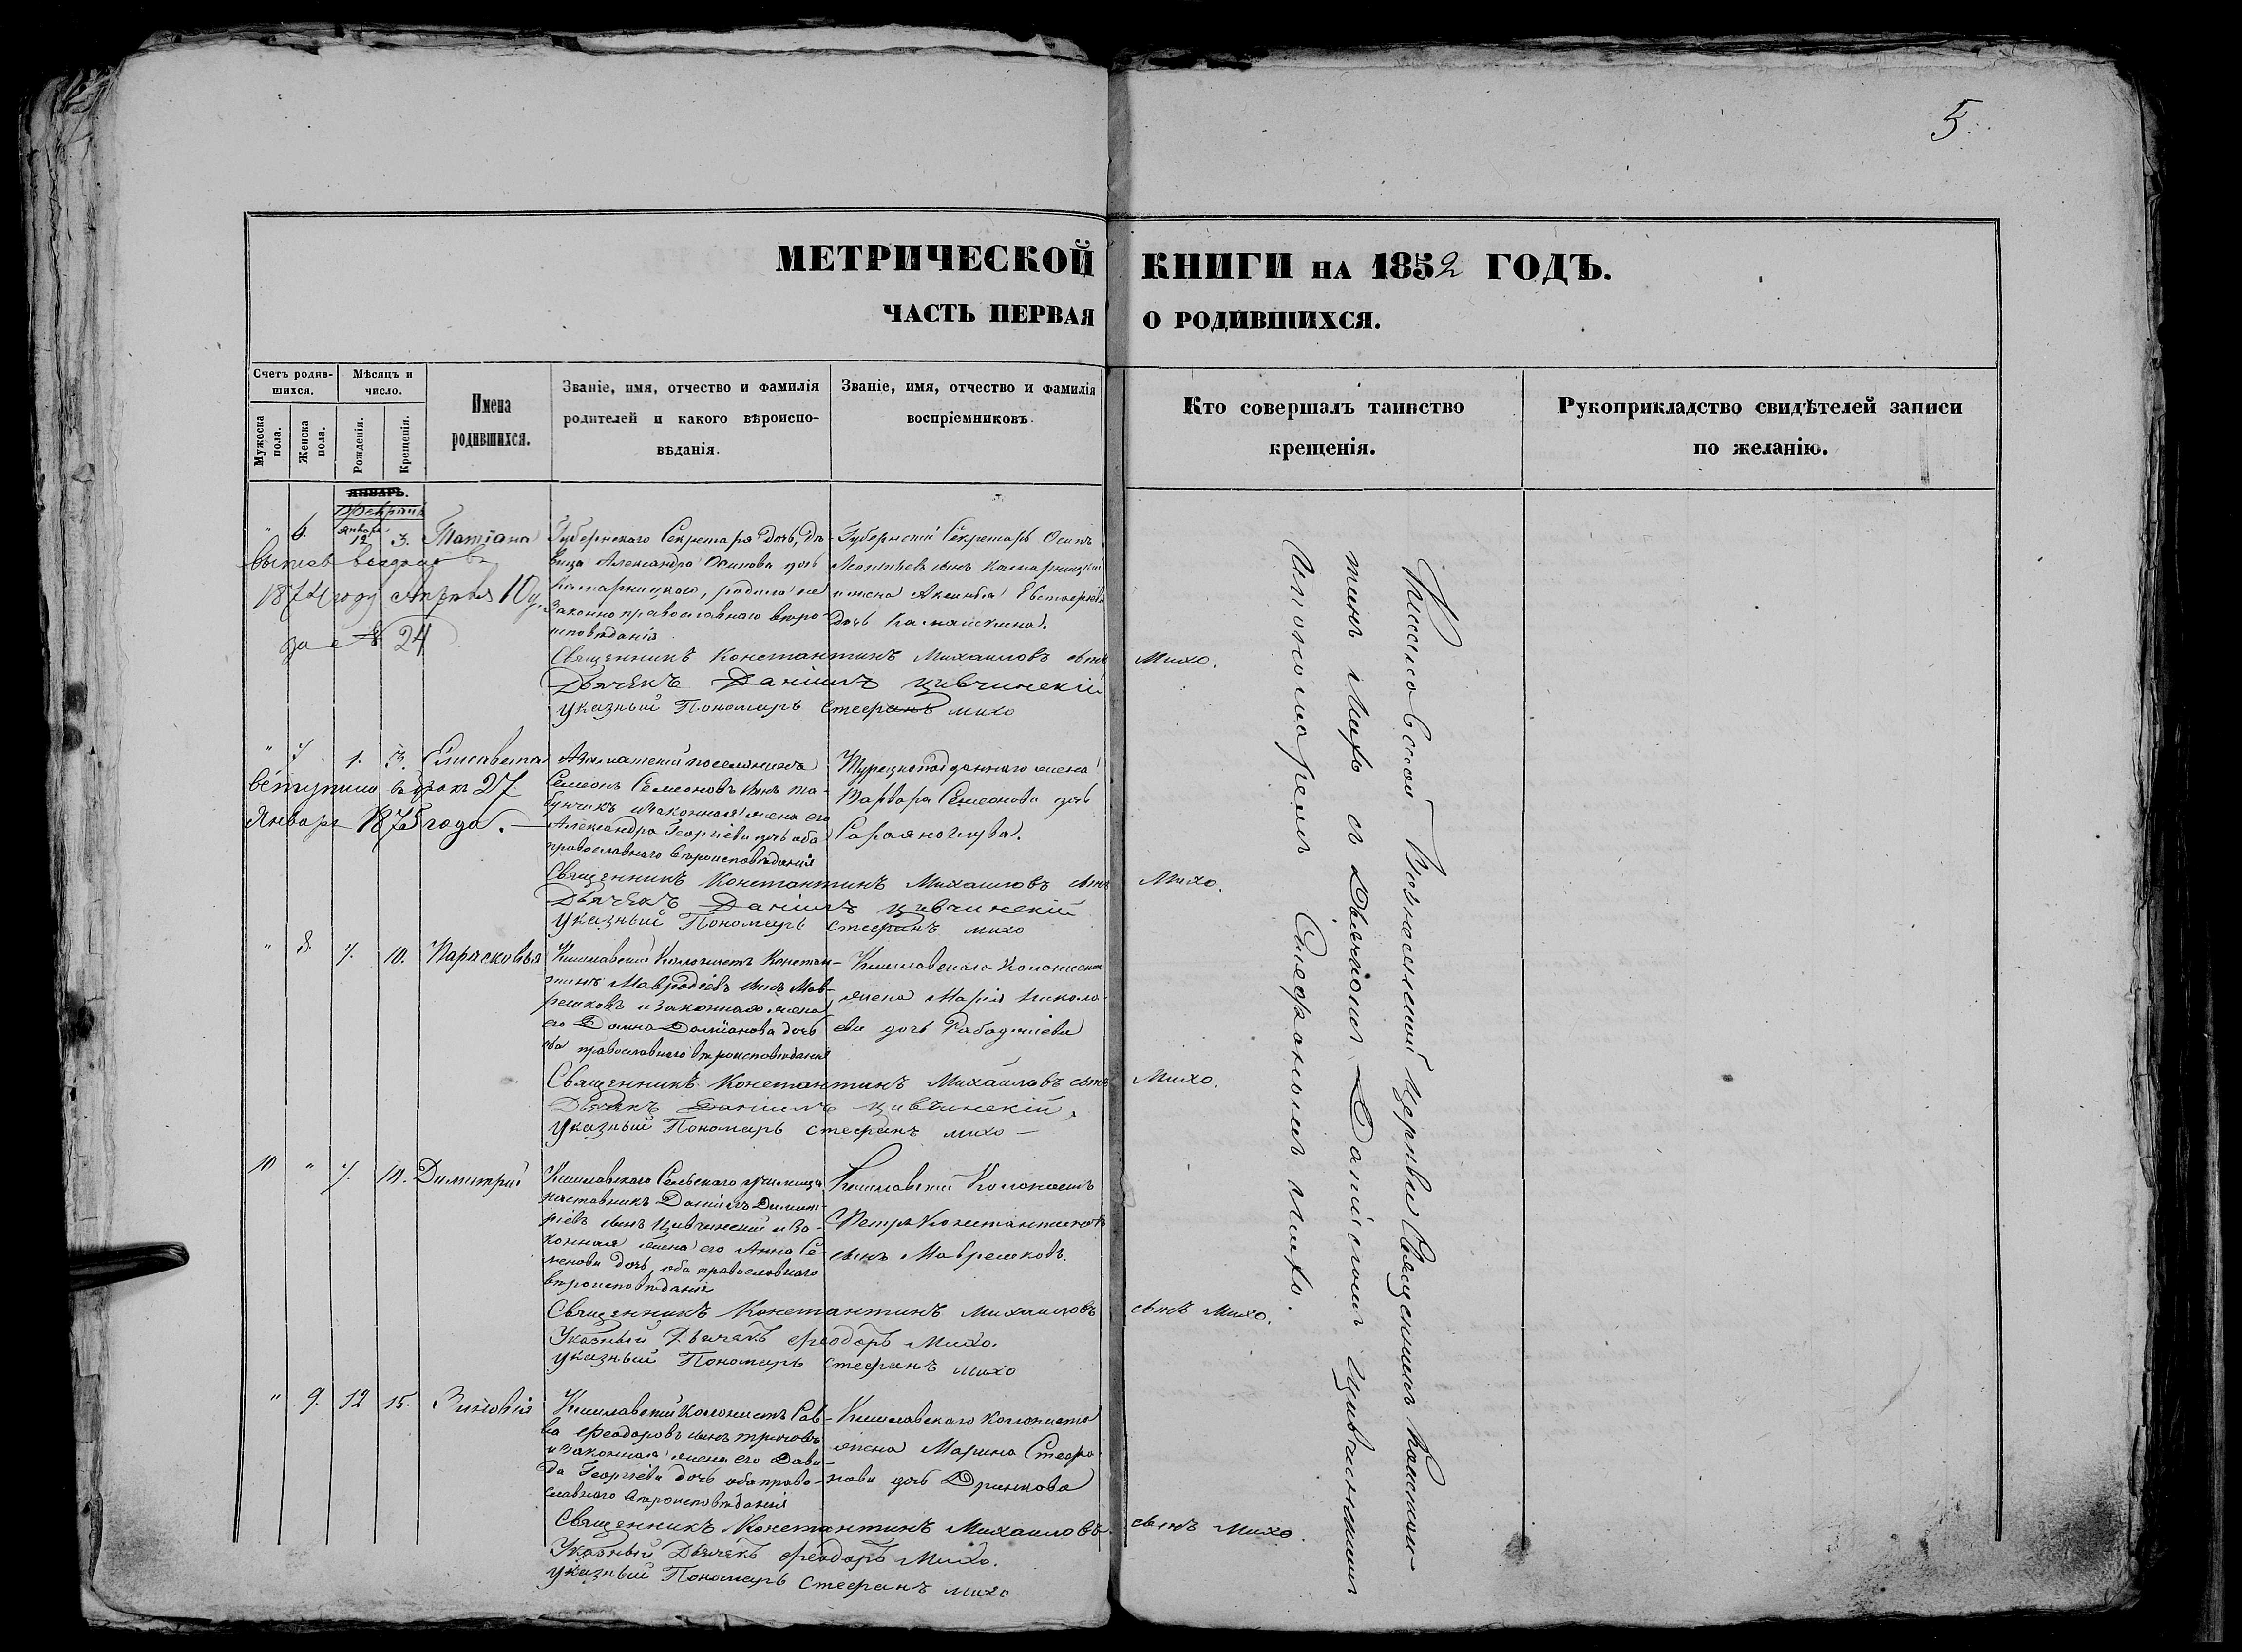 5.
МЕТРИЧЕСКОЙ КНИГИ НА 1852 ГОДЪ.
ЧАСТЬ ПЕРВАЯ О РОДИВШИХСЯ.
Счетъ родив-
шихся.
Мужеска пола.
Женска пола.
Мѣсяцъ и
число.
Рожденія.
Крещенія.
Имена
родившихся.
Званіе, имя, отчество и фамилія
родителей и какого вѣроиспо-
вѣданія.
Званіе, имя, отчество и фамилія
воспріемниковъ.
Кто совершалъ таинство
крещенія.
Рукоприкладство свидѣтелей записи
по желанію.
ЯНВАРЬ.
" 6. Января 12 3. Татіана
1874 году Апрѣля 10 д.
за № 24
Губернскаго Секретаря дочь, дѣ-
вица Александра Осипова дочь
Комарницкаго, родила не
законно православнаго вѣро-
исповѣданія
Губернскій Секретарь Осипъ
Леонтьевъ сынъ Комарницкій
и жена Аксинья
дочь
Священникъ Константинъ Михаиловъ сынъ Михо.
Дьячекъ Даніилъ Цивчинскій
Указный Пономарь Стефанъ Михо
" 7 1. 3. Елисавета
27
Января 1875 года.
поселянинъ
Семеонъ Семеоновъ сынъ Та-
бунчикъ и законная жена его
Александра Георгіева дочь оба
православнаго вѣроисповѣданія
Турецкоподданнаго жена
Варвара Семеонова дочь
Священникъ Константинъ Михаиловъ сынъ Михо.
Дьячекъ Даніилъ Цивчинскій
Указный Пономарь Стефанъ Михо
" 8. 7. 10. Парасковья
Кишлавскій Колонистъ Констан-
тинъ Мавродіевъ сынъ Мав-
решковъ и законная жена
его Домна Даміанова дочь
оба православнаго вѣроисповѣданія
Кишлавскаго Колониста
жена Марія Никола-
ева дочь Рабаджіева
Священникъ Константинъ Михаиловъ сынъ Михо.
Дьячекъ Даніилъ Цивчинскій.
Указный Пономарь Стефанъ Михо
10 " 7. 10. Димитрій
Кишлавскаго Сельскаго училища
наставникъ Даніилъ Димит-
ріевъ сынъ Цивчинскій и за-
конная жена его Анна Се-
менова дочь, оба православнаго
вѣроисповѣданія
Кишлавскій Колонистъ
Петръ Константиновъ
сынъ Маврешковъ.
Священникъ Константинъ Михаиловъ сынъ Михо.
Указный Дьячекъ Феодоръ Михо.
Указный Пономарь Стефанъ Михо
" 9. 12 15. Зиновія
Кишлавскій Колонистъ Сав-
ва Феодоровъ сынъ
и законная жена его Дави-
да Георгіева дочь оба право-
славнаго вѣроисповѣданія
Кишлавскаго Колониста
жена Марина Стефа-
нова дочь Дринкова
Священникъ Константинъ Михаиловъ сынъ Михо.
Указный Дьячекъ Феодоръ Михо.
Указный Пономарь Стефанъ Михо
Кишлавской Вознесенской церкви Священникъ Констан-
тинъ Михо съ Дьячкомъ Даніиломъ Цивчинскимъ
и пономаремъ Стефаномъ Михо.